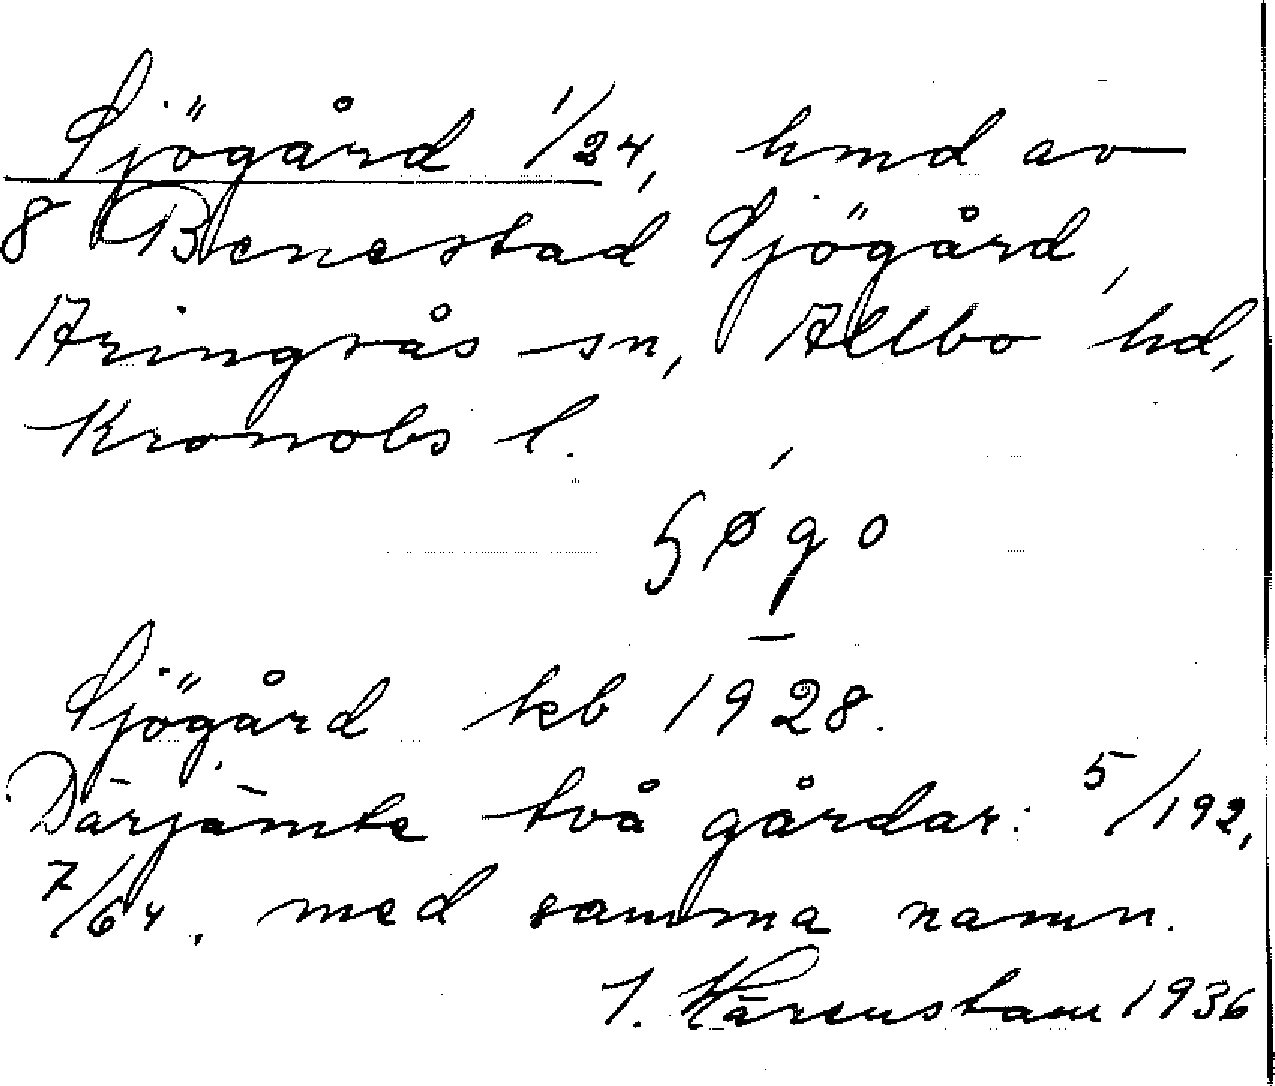 Sjögård 1/24, hmd av
8 Benestad Sjögård,
Aringsås sn, Allbo hd,
Kronobs l.
Sjögård kb 1928.
Därjämte två gårdar: 5/192,
7/64, med samma namn.
I. Kärenstam 1936